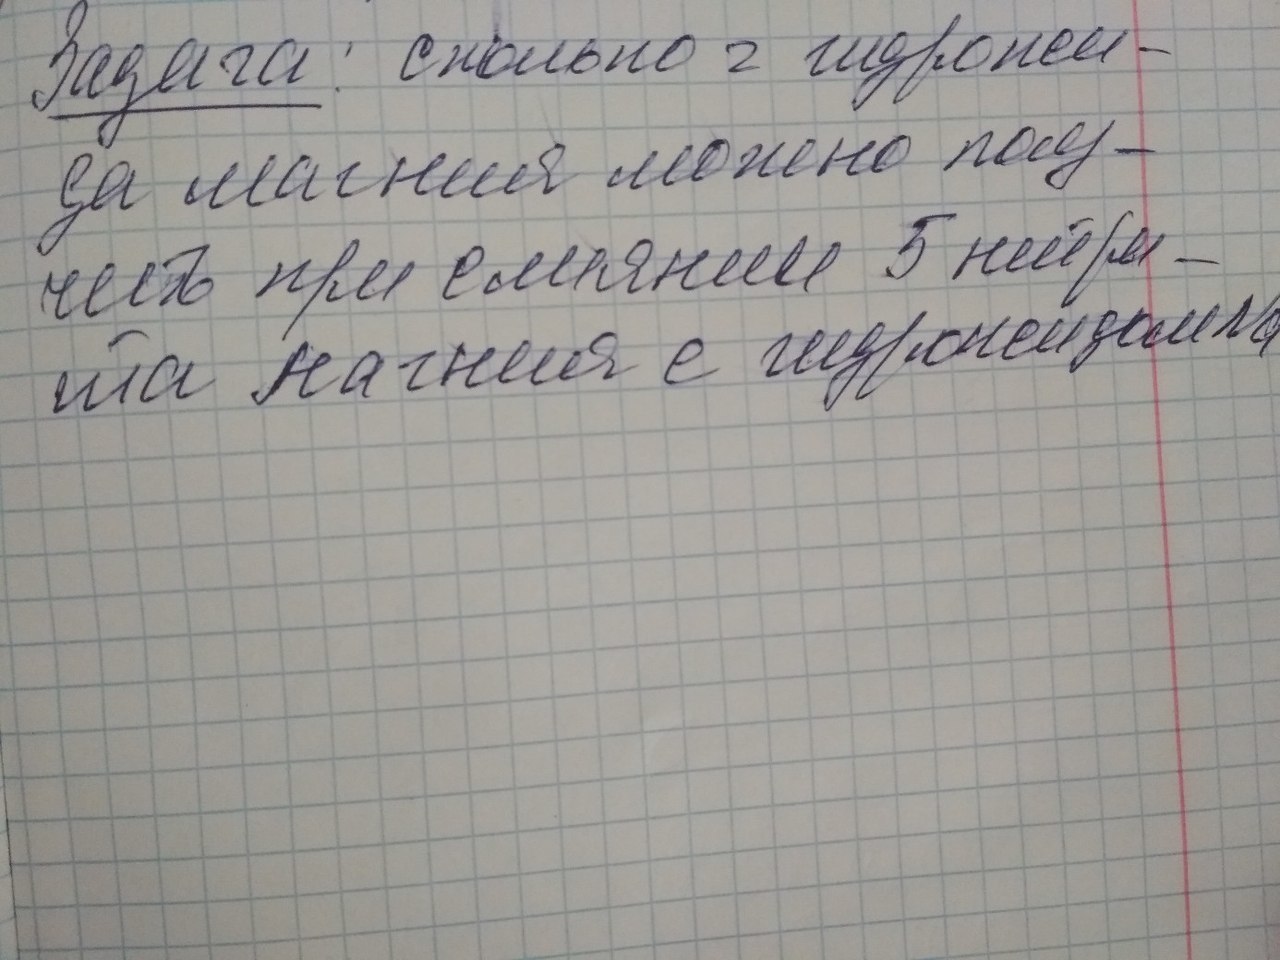 Задача: сколько г гидрокси-
да магния можно полу-
чить при слиянии 5 нитри-
та магния с гидроксидом Na